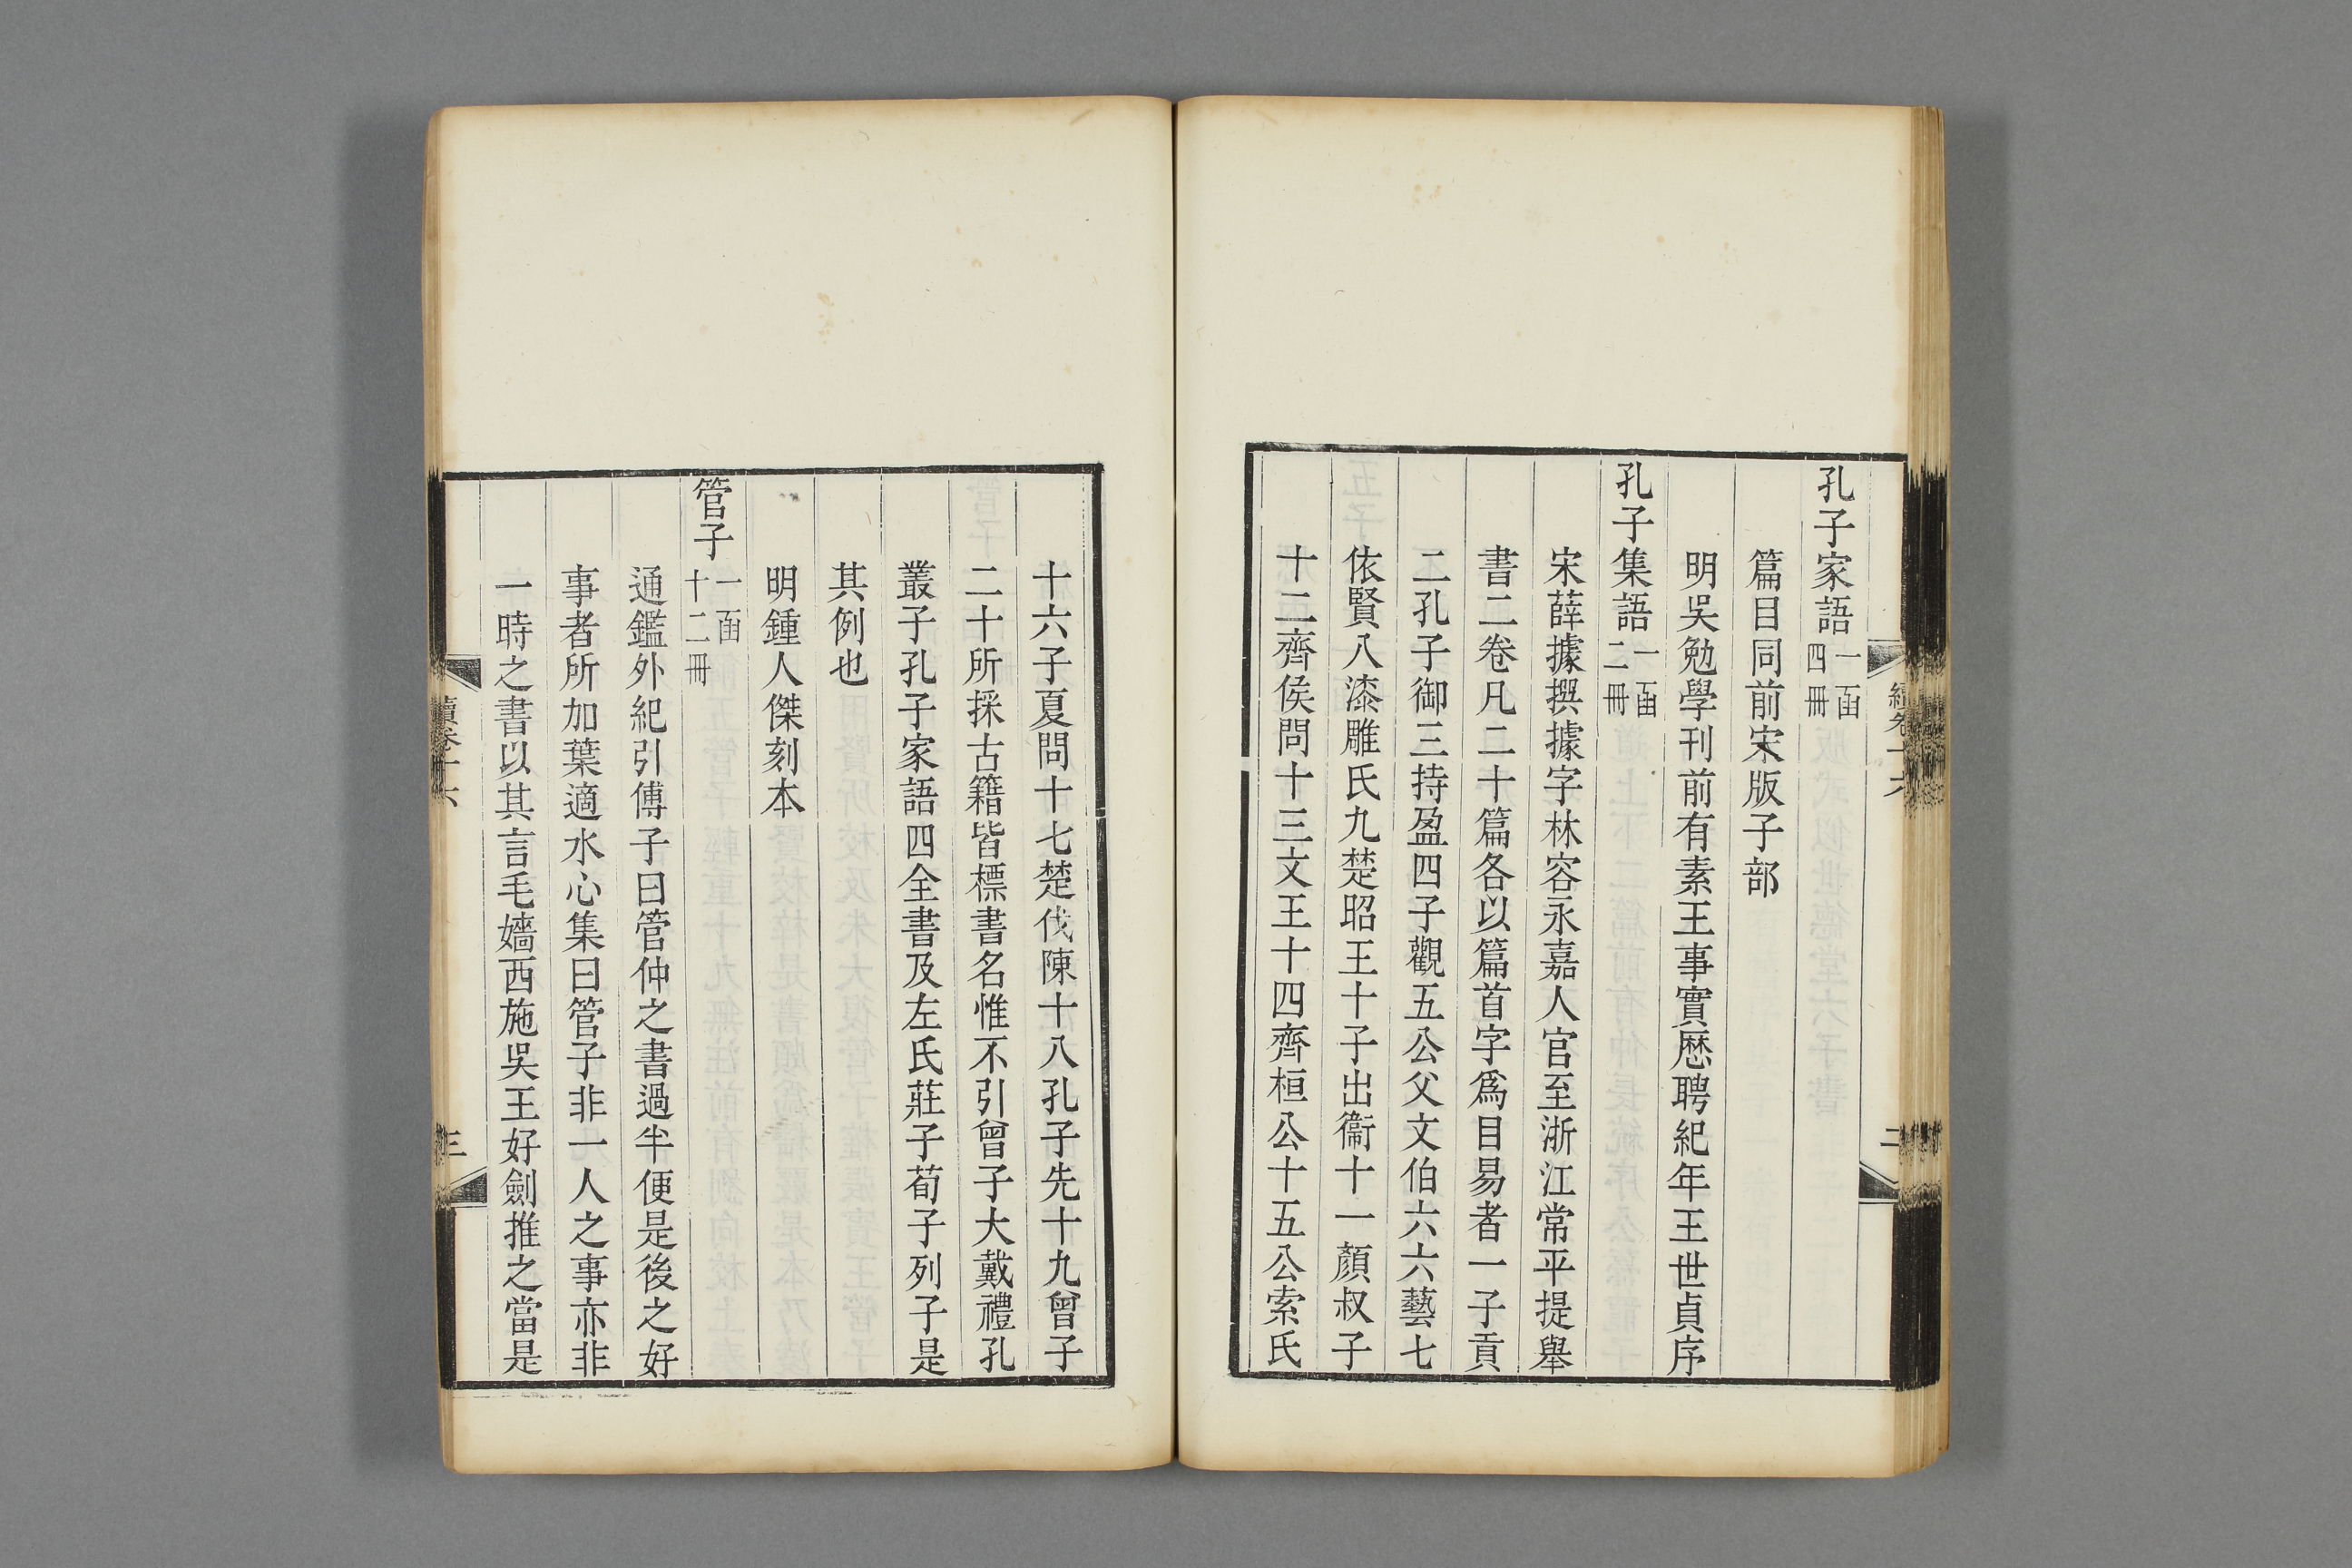 孔子家語一函四冊
篇目同前宋版子部
明吳勉學刊前有素王事實歷聘紀年王世貞序
孔子集語一函二冊
宋薛據撰據字林容永嘉人官至浙江常平提舉
書二卷凡二十篇各以篇首字爲目易者一子貢
二孔子御三持盈四子觀五公父文伯六六藝七
依賢八漆雕氏九楚昭王十子出衞十一顏叔子
十二齊侯問十三文王十四齊桓公十五公索氏
十六子夏問十七楚伐陳十八孔子先十九曾子
二十所採古籍皆標書名惟不引曾子大戴禮孔
叢子孔子家語四全書及左氏莊子荀子列子是
其例也
明鍾人傑刻本
管子一函十二冊
通鑑外紀引傅子曰管仲之書過半便是後之好
事者所加葉適水心集曰管子非一人之事亦非
一時之書以其言毛嬙西施吳王好劍推之當是
續卷十六
三